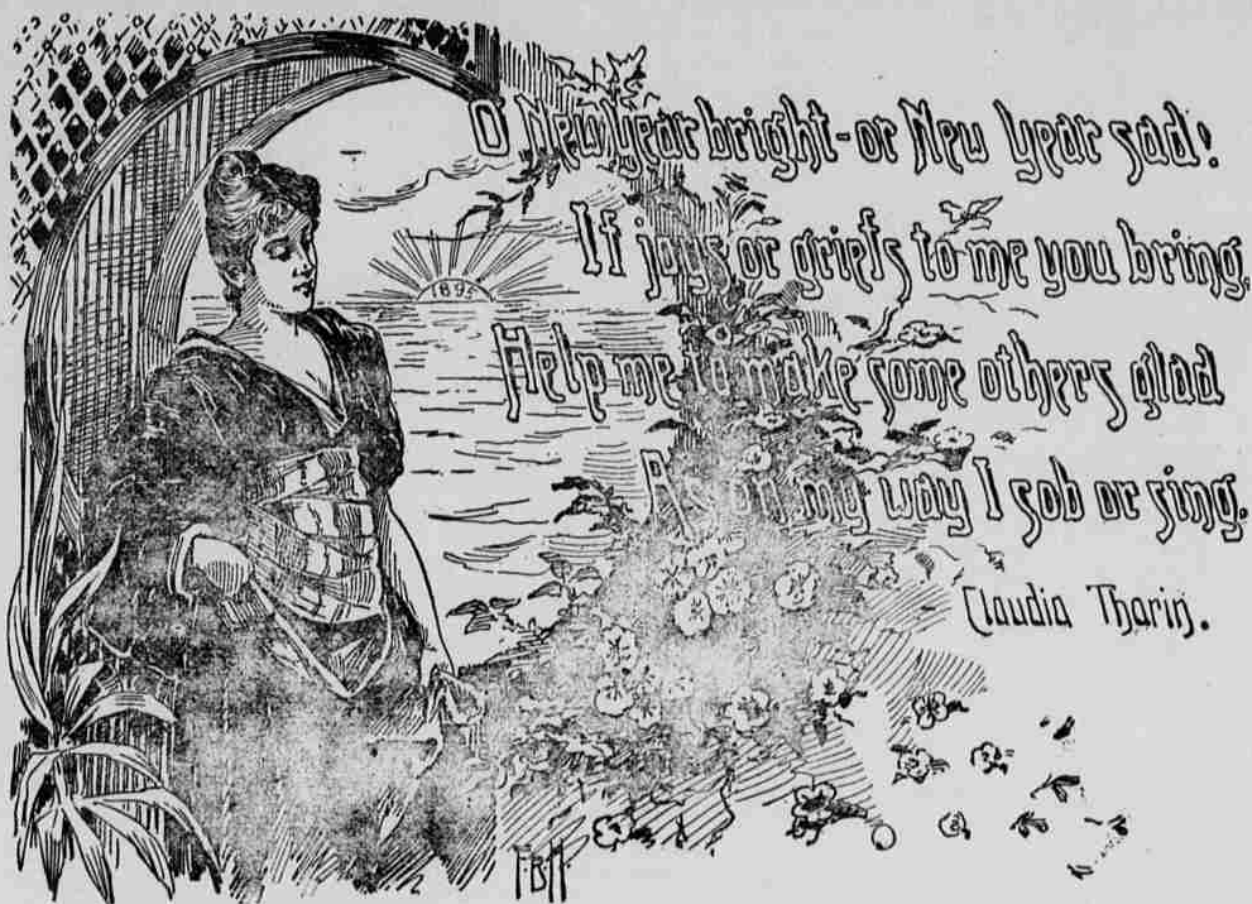 O New Year bright - or New Year sad!
If joys or griefs to me you bring,
Help me to make some others glad
As on my way I sob or sing.
Claudia Tharin.
1895
F.B.M.